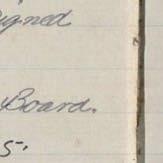 igned
Board.
5.